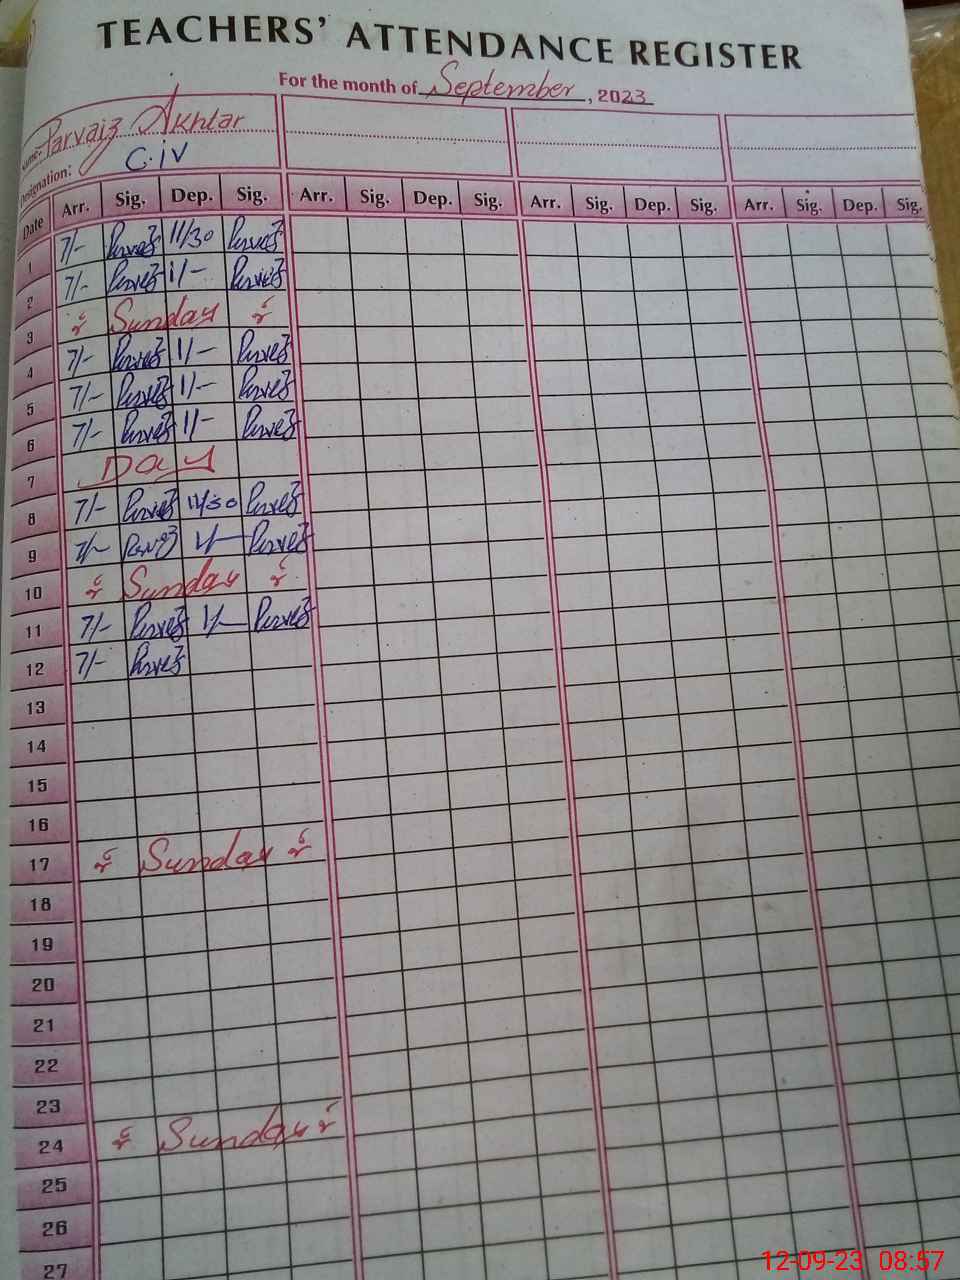 TEACHERS' ATTENDANCE REGISTER
For the month of September, 2023
Name:- Parvaiz Akhtar
Designation: C.iV
Date Arr. Sig. Dep. Sig. Arr. Sig. Dep. Sig. Arr. Sig. Dep. Sig. Arr. Sig. Dep. Sig.
1 7/- Pervez 11/30 Pervez
2 7/- Pervez 1/- Pervez
3 Sunday
4 7/- Pervez 1/- Pervez
5 7/- Pervez 1/- Pervez
6 7/- Pervez 1/- Pervez
7 Day
8 7/- Pervez 11/30 Pervez
9 7/- Pervez 1/- Pervez
10 Sunday
11 7/- Pervez 1/- Pervez
12 7/- Pervez
13
14
15
16
17 Sunday
18
19
20
21
22
23
24 Sunday
25
26
27
12-09-23 08:57